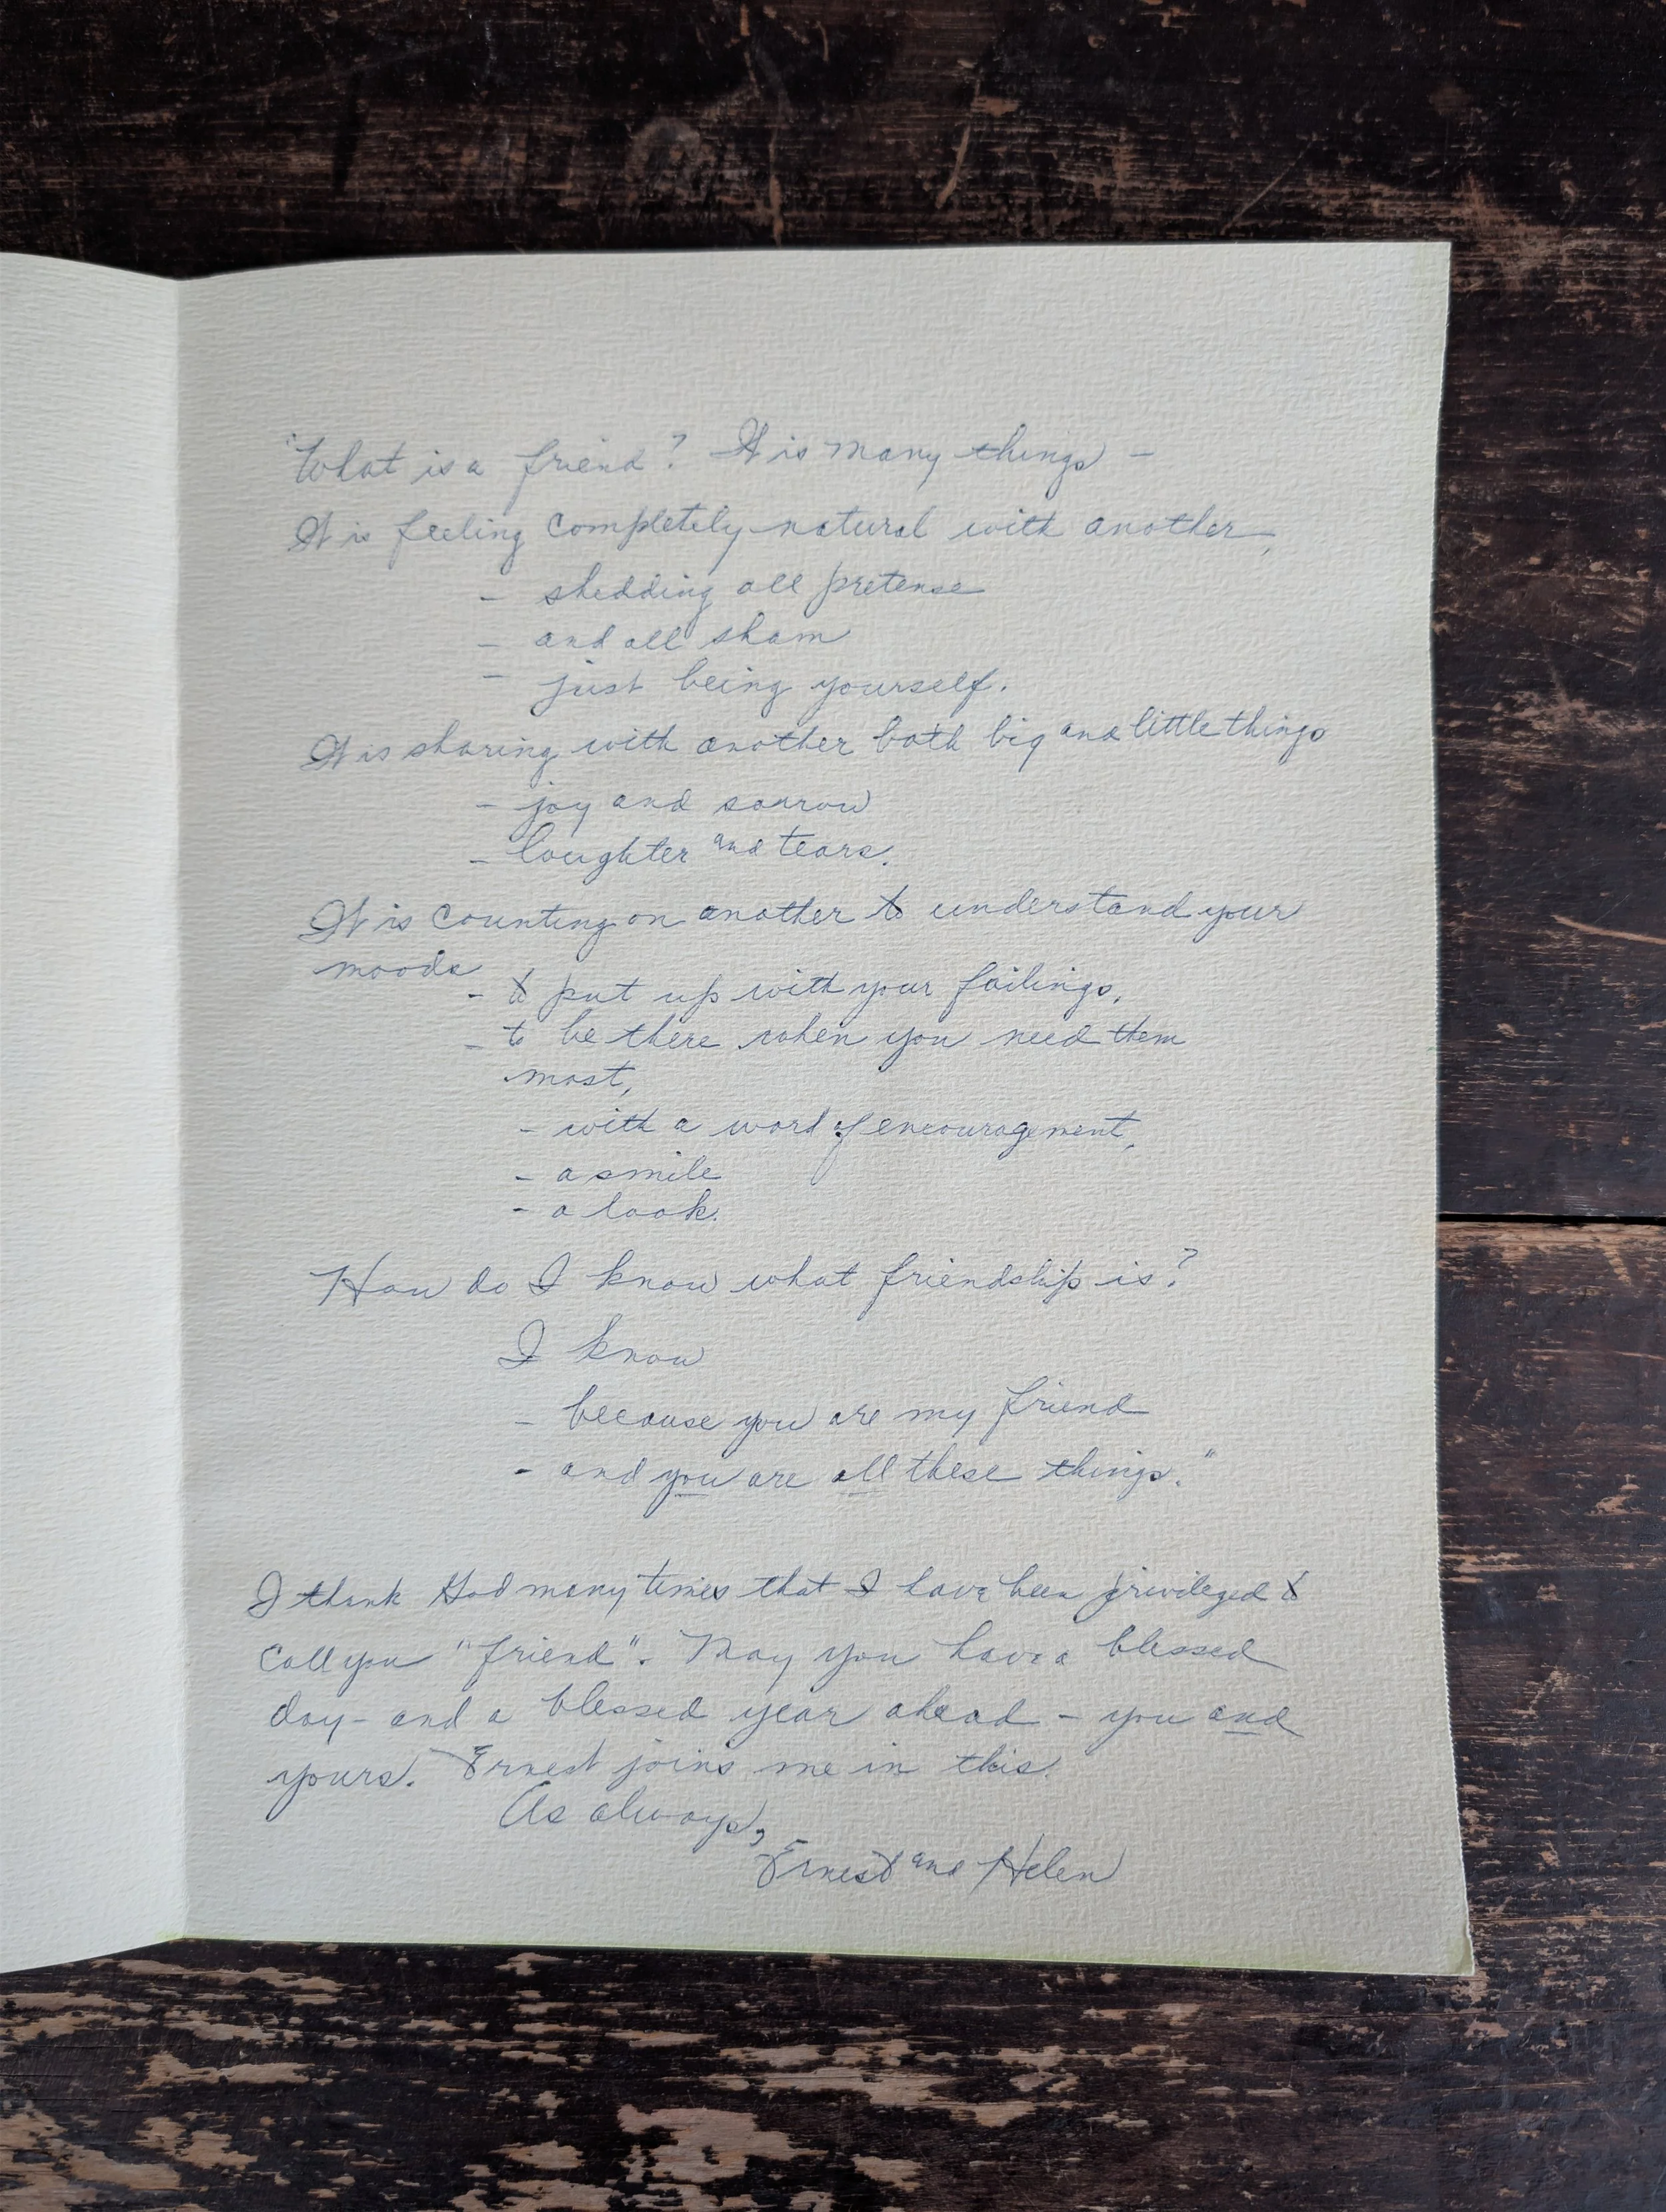 "What is a friend? It is many things -
It is feeling completely natural with another,
- shedding all pretense
- and all sham
- just being yourself.
It is sharing with another both big and little things
- joy and sorrow
- laughter and tears.
It is counting on another to understand your
moods
- to put up with your failings,
- to be there when you need them
most,
- with a word of encouragement,
- a smile
- a look.
How do I know what friendship is?
I know
- because you are my friend
- and you are all these things."
I thank God many times that I have been privileged to
call you "friend". May you have a blessed
day - and a blessed year ahead - you and
yours. Ernest joins me in this.
As always,
Ernest and Helen